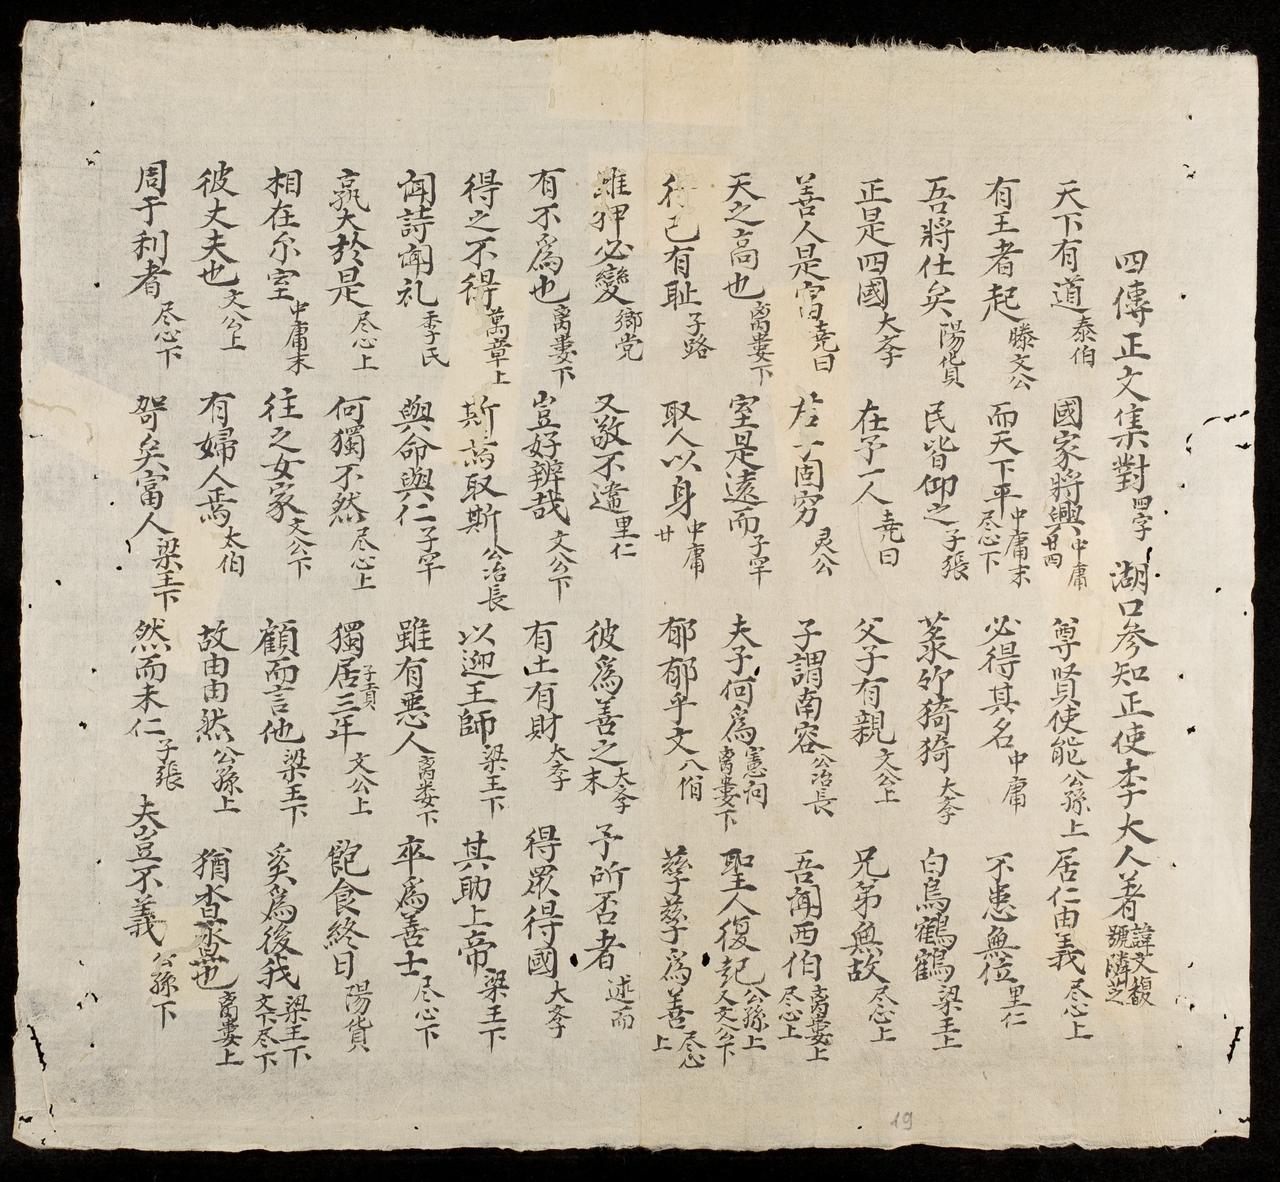 四傳正文集對四字 湖口参知正使李大人著諱文馥號隣芝
天下有道泰伯 國家將興中庸廿四 尊賢使能公孫上 居仁由義尽心上
有王者起滕文公 而天下平中庸末尽心下 必得其名中庸 不患無位里仁
吾將仕矣陽貨 民皆仰之子張 菉竹猗猗大孝 白鳥鶴鶴梁王上
正是四國大孝 在予一人堯曰 父子有親文公上 兄弟無故尽心上
善人是富堯曰 君子固穷灵公 子謂南容公冶長 吾聞西伯离婁上尽心上
天之高也离婁下 室是遠而子罕 夫子何為憲问离婁下 聖人復起公孫上又文公下
行己有耻子路 取人以身中庸廿 郁郁乎文八佾 孳孳為善尽心上
雖狎必變鄉党 又敬不違里仁 彼為善之大孝末 予所否者述而
有不為也离婁下 豈好辨哉文公下 有土有財大孝 得眾得國大孝
得之不得萬章上 斯焉取斯公冶長 以迎王師梁王下 其助上帝梁王下
闻詩闻礼季氏 與命與仁子罕 雖有惡人离娄下 卒為善士尽心下
孰大於是尽心上 何獨不然尽心上 獨居三年子貢文公上 飽食終日陽貨
相在尔室中庸末 往之女家文公下 顧而言他梁王下 奚為後我梁王下文下尽下
彼丈夫也文公上 有婦人焉太伯 故由由然公孫上 猶沓沓也离婁上
周于利者尽心下 哿矣富人梁王下 然而未仁子張 夫豈不義公孫下
19